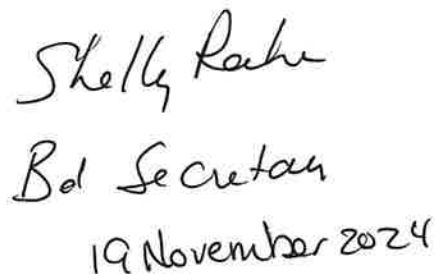 Shelly
Bd Secretary
19 November 2024